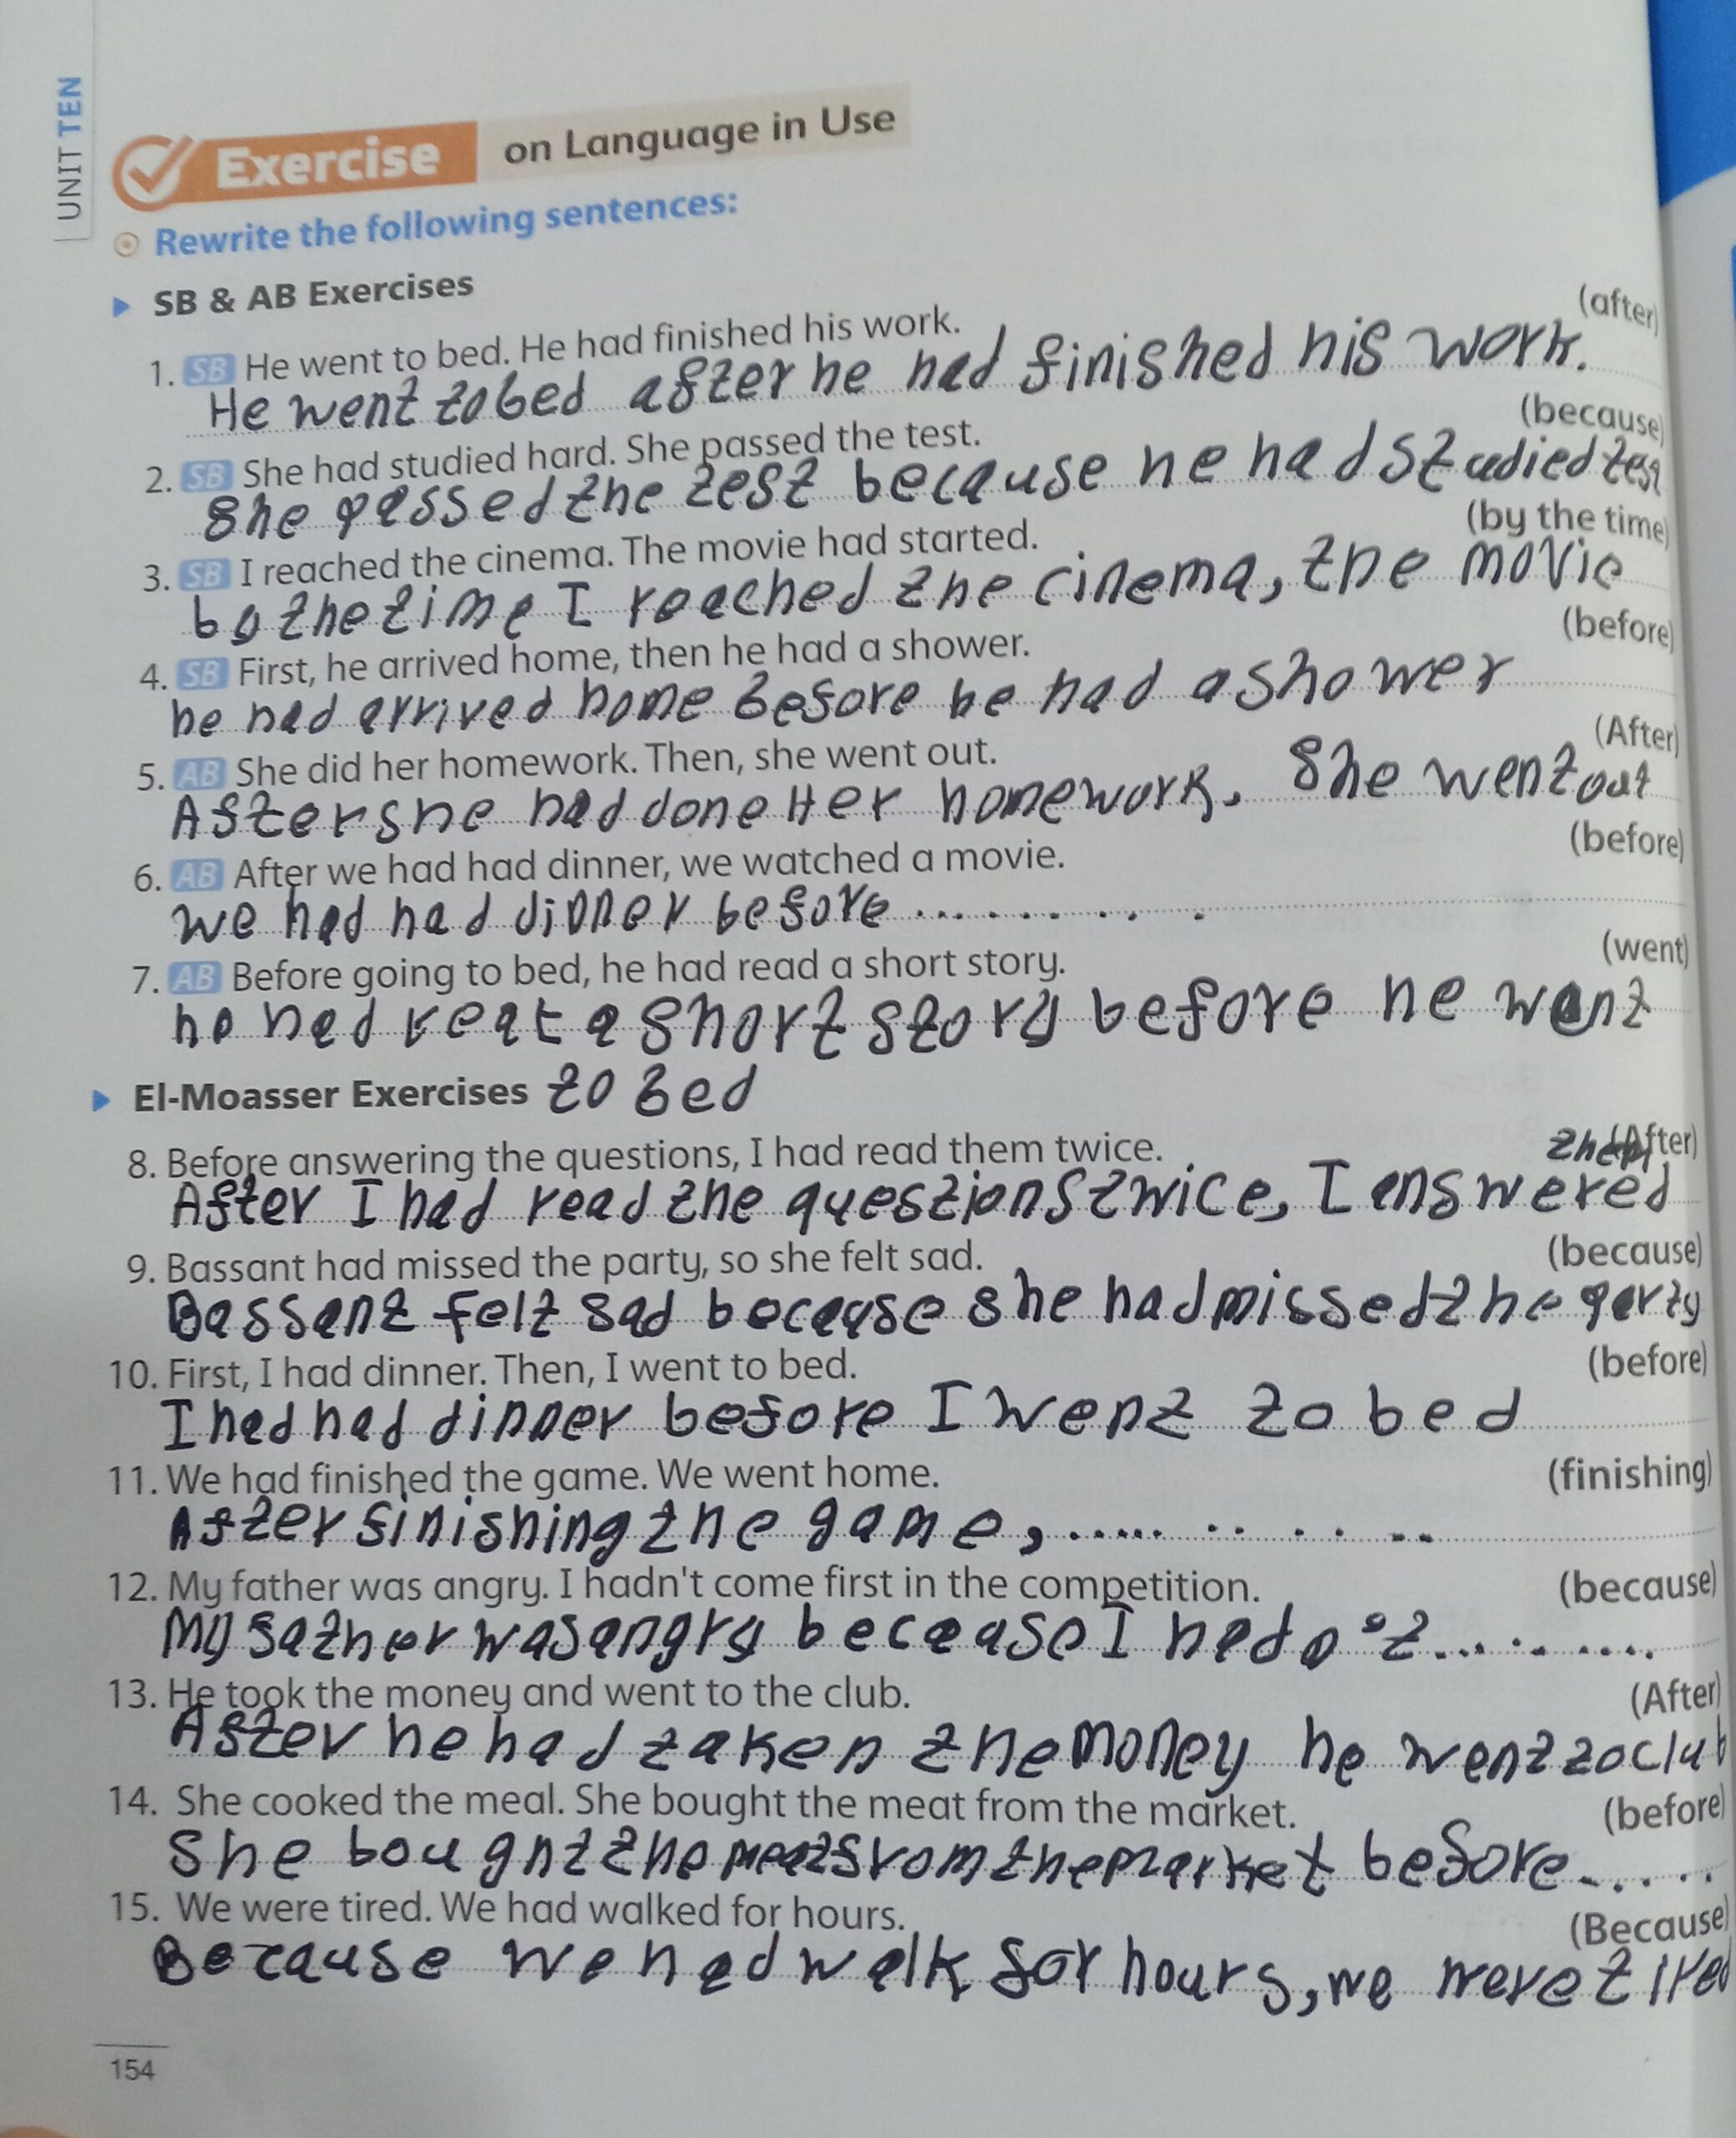 UNIT TEN
Exercise on Language in Use
Rewrite the following sentences:
SB & AB Exercises
1. SB He went to bed. He had finished his work. (after)
He went to bed after he had finished his work.
2. SB She had studied hard. She passed the test. (because)
She passed the test because he had studied test
3. SB I reached the cinema. The movie had started. (by the time)
by the time I reached the cinema, the movie
4. SB First, he arrived home, then he had a shower. (before)
he had arrived home before he had a shower
5. AB She did her homework. Then, she went out. (After)
After she had done Her homework. She went out
6. AB After we had had dinner, we watched a movie. (before)
we had had dinner before ..........
7. AB Before going to bed, he had read a short story. (went)
he had reat a short story before he went
El-Moasser Exercises to bed
8. Before answering the questions, I had read them twice. (After)
After I had read the questions twice, I answered them
9. Bassant had missed the party, so she felt sad. (because)
Bassant felt sad because she had missed the party
10. First, I had dinner. Then, I went to bed. (before)
I had had dinner before I went to bed
11. We had finished the game. We went home. (finishing)
After finishing the game, ..........
12. My father was angry. I hadn't come first in the competition. (because)
My father was angry because I hadn't ..........
13. He took the money and went to the club. (After)
After he had taken the money he went to club
14. She cooked the meal. She bought the meat from the market. (before)
She bought the meat from the market before ......
15. We were tired. We had walked for hours. (Because)
Because we had walk for hours, we were tired
154